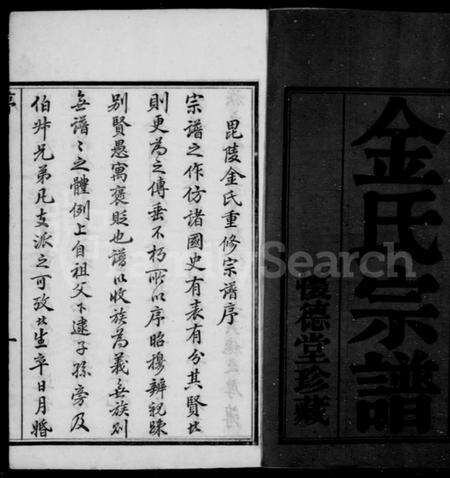 金氏宗譜
懷德堂珍藏
毘陵金氏重修宗譜序
宗譜之作仿諸國史有表有分其賢者
則更為之傳垂不朽所以序昭穆辨親疎
別賢愚寓褒貶也譜以收族為義無族別
無譜譜之體例上自祖父下逮子孫旁及
伯叔兄弟凡支派之可攷者生卒日月婚
Search